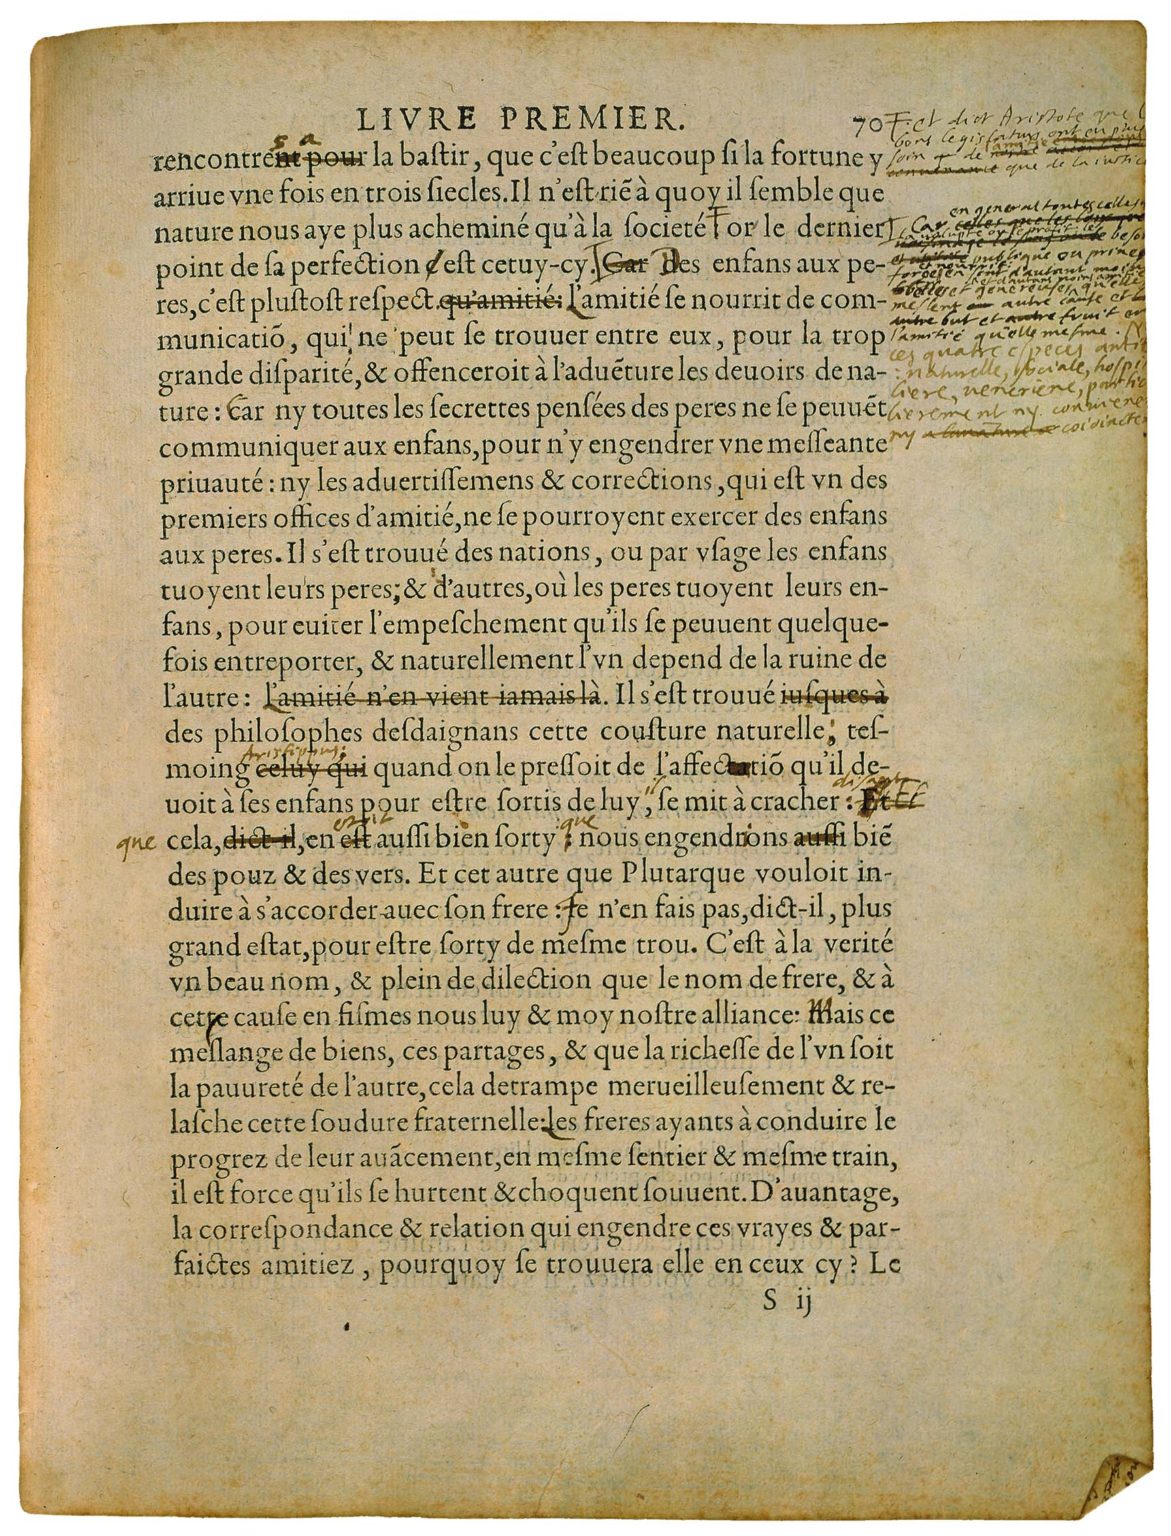 LIVRE PREMIER. 70
rencontrent pour la baſtir, que c'eſt beaucoup ſi la fortune y
s a
arriue vne fois en trois ſiecles. Il n'eſt riẽ à quoy il ſemble que
nature nous aye plus acheminé qu'à la societé or le dernier
point de ſa perfection eſt cetuy-cy. Car Des enfans aux pe-
res, c'eſt pluſtoſt reſpect qu'amitié: L'amitié ſe nourrit de com-
municatiõ, qui ne peut ſe trouuer entre eux, pour la trop
grande diſparité, & offenceroit à l'aduẽture les deuoirs de na-
ture: Car ny toutes les ſecrettes penſées des peres ne ſe peuuẽt
communiquer aux enfans, pour n'y engendrer vne meſſeante
priuauté: ny les aduertiſſemens & corrections, qui eſt vn des
premiers offices d'amitié, ne ſe pourroyent exercer des enfans
aux peres. Il s'eſt trouué des nations, ou par vſage les enfans
tuoyent leurs peres; & d'autres, où les peres tuoyent leurs en-
fans, pour euiter l'empeſchement qu'ils ſe peuuent quelque-
fois entreporter, & naturellement l'vn depend de la ruine de
l'autre: L'amitié n'en vient iamais là. Il s'eſt trouué iuſques à
des philoſophes deſdaignans cette couſture naturelle, teſ-
Aristippus
moing celuy qui quand on le preſſoit de l'affectiõ qu'il de-
disant
uoit à ſes enfans pour eſtre ſortis de luy, ſe mit à cracher: Et
que cela, dict-il, en eſt auſſi bien ſorty: que nous engendrons auſſi biẽ
des pouz & des vers. Et cet autre que Plutarque vouloit in-
duire à s'accorder auec ſon frere: Je n'en fais pas, dict-il, plus
grand eſtat, pour eſtre ſorty de meſme trou. C'eſt à la verité
vn beau nom, & plein de dilection que le nom de frere, & à
cette cauſe en fiſmes nous luy & moy noſtre alliance: Mais ce
meſlange de biens, ces partages, & que la richeſſe de l'vn ſoit
la pauureté de l'autre, cela detrampe merueilleuſement & re-
laſche cette ſoudure fraternelle: Les freres ayants à conduire le
progrez de leur auãcement, en meſme ſentier & meſme train,
il eſt force qu'ils ſe hurtent & choquent ſouuent. D'auantage,
la correſpondance & relation qui engendre ces vrayes & par-
faictes amitiez, pourquoy ſe trouuera elle en ceux cy? Le
S ij
et dict Aristote que
bons legislateurs ont eu plus
soin de
que de la iustice
en general toutes celles
publique ou
et genereuses
autre cause et
but et fruit
l'amitié qu'elle mesme.
ces quatre especes
naturelle, sociale, hospi
liere, venerienne, particu
lierement ny conviene
ny coiointe